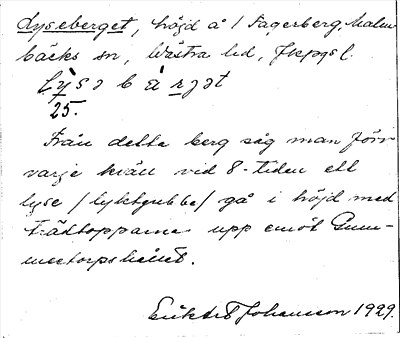 Lyseberget, höjd å 1 Fagerberg, Malm-
bäcks sn, Västra hd, Jkpgs l.
Lỳsəbàrjət
25.
Från detta berg såg man förr
varje kväll vid 8-tiden ett
lyse /lyktgubbe/ gå i höjd med
trädtopparna upp emot Gum-
metorpshållet.
Johansson 1929.